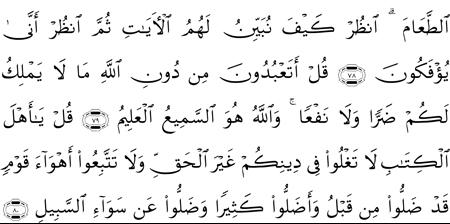 الطَّعَامَ ۗ انظُرْ كَيْفَ نُبَيِّنُ لَهُمُ الْأَيَٰتِ ثُمَّ انظُرْ أَنَّىٰ
يُؤْفَكُونَ ٧٨ قُلْ أَتَعْبُدُونَ مِن دُونِ اللَّهِ مَا لَا يَمْلِكُ
لَكُمْ ضَرًّا وَلَا نَفْعًا ۚ وَاللَّهُ هُوَ السَّمِيعُ الْعَلِيمُ ٧٩ قُلْ يَٰأَهْلَ
الْكِتَٰبِ لَا تَغْلُوا فِى دِينِكُمْ غَيْرَ الْحَقِّ وَلَا تَتَّبِعُوا أَهْوَآءَ قَوْمٍ
قَدْ ضَلُّوا مِن قَبْلُ وَأَضَلُّوا كَثِيرًا وَضَلُّوا عَن سَوَآءِ السَّبِيلِ ٨٠